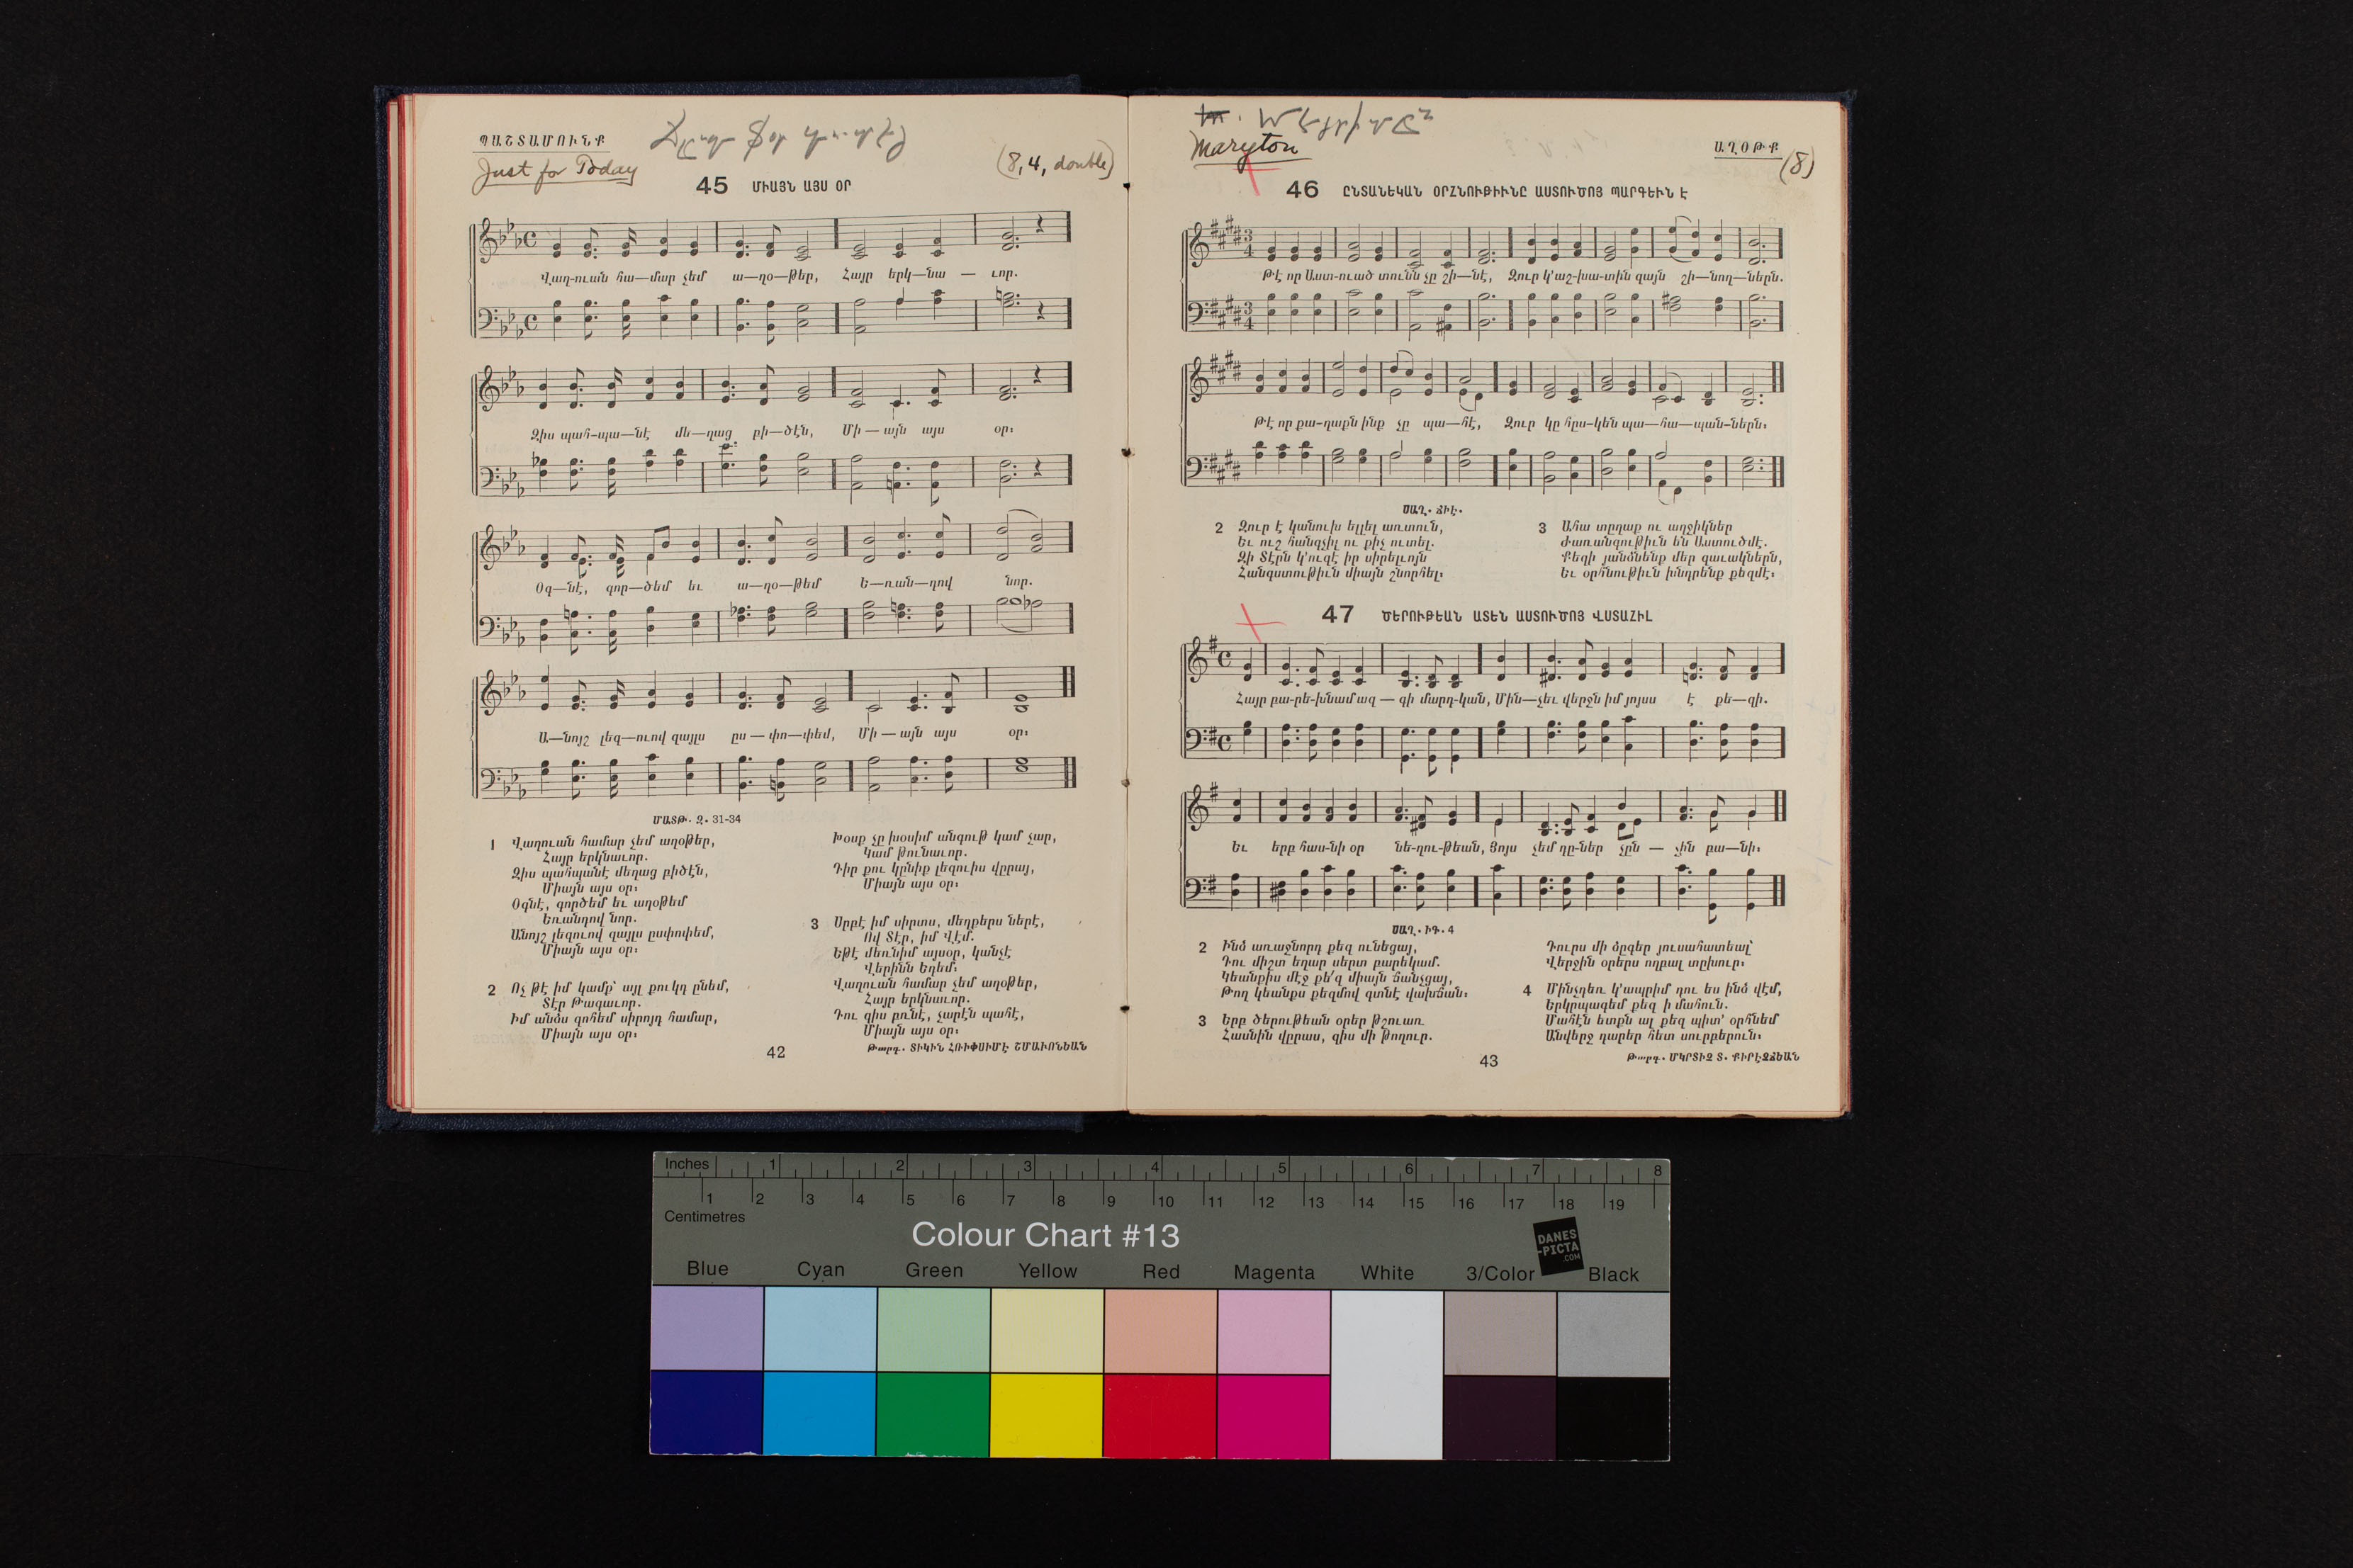 ՊԱՇՏԱՄՈՒՆՔ
Just for Today
(8, 4, double)
45 ՄԻԱՅՆ ԱՅՍ ՕՐ
Վաղ-ուան հա—մար չեմ ա—ղօ—թեր, Հայր երկ—նա — ւոր.
Զիս պահ-պա—նէ մե—ղաց բի—ծէն, Մի — այն այս օր։
Օգ—նէ, գոր—ծեմ եւ ա—ղօ—թեմ Ե—ռան—դով նոր.
Ա—նոյշ լեզ—ուով զայլս ըս — փո—փեմ, Մի — այն այս օր։
ՄԱՏԹ. Զ. 31-34
1 Վաղուան համար չեմ աղօթեր,
Հայր երկնաւոր.
Զիս պահպանէ մեղաց բիծէն,
Միայն այս օր։
Օգնէ, գործեմ եւ աղօթեմ
Եռանդով նոր.
Անոյշ լեզուով զայլս ըսփոփեմ,
Միայն այս օր։
2 Ոչ թէ իմ կամք՝ այլ քուկդ ընեմ,
Տէր Թագաւոր.
Իմ անձս զոհեմ սիրոյդ համար,
Միայն այս օր։
Խօսք չը խօսիմ անգութ կամ չար,
Կամ թունաւոր.
Դիր քու կընիք լեզուիս վըրայ,
Միայն այս օր։
3 Սրբէ իմ սիրտս, մեղքերս ներէ,
Ով Տէր, իմ Վէմ.
Եթէ մեռնիմ այսօր, կանչէ
Վերինն Եդեմ։
Վաղուան համար չեմ աղօթեր,
Հայր երկնաւոր.
Դու զիս բռնէ, չարէն պահէ,
Միայն այս օր։
42
Թարգ. ՏԻԿԻՆ ՀՌԻՓՍԻՄԷ ՇՄԱՒՈՆԵԱՆ
Maryton
ԱՂՕԹՔ
(8)
46 ԸՆՏԱՆԵԿԱՆ ՕՐՀՆՈՒԹԻՒՆԸ ԱՍՏՈՒԾՈՅ ՊԱՐԳԵՒՆ Է
Թէ որ Աստ-ուած տունն չը շի—նէ, Զուր կ'աշ-խա-տին զայն շի—նող—ներն.
Թէ որ քա-ղաքն ինք չը պա—հէ, Զուր կը հըս-կեն պա—հա—պան-ներն։
ՍԱՂ. ՃԻԷ.
2 Զուր է կանուխ ելլել առտուն,
Եւ ուշ հանգչիլ ու քիչ ուտել.
Զի Տէրն կ'ուզէ իր սիրելւոյն
Հանգստութիւն միայն շնորհել։
3 Ահա տըղաք ու աղջիկներ
Ժառանգութիւն են Աստուծմէ.
Քեզի յանձնենք մեր զաւակներն,
Եւ օրհնութիւն խնդրենք քեզմէ։
47 ԾԵՐՈՒԹԵԱՆ ԱՏԵՆ ԱՍՏՈՒԾՈՅ ՎՍՏԱՀԻԼ
Հայր բա-րե-խնամ ազ — գի մարդ-կան, Մին—չեւ վերջն իմ յոյսս է քե—զի.
Եւ երբ հաս-նի օր նե-ղու-թեան, Յոյս չեմ դը-ներ չըն — չին բա—նի։
ՍԱՂ. ԻԳ. 4
2 Ինձ առաջնորդ քեզ ունեցայ,
Դու միշտ եղար սերտ բարեկամ.
Կեանքիս մէջ քե՛զ միայն ճանչցայ,
Թող կեանքս քեզմով գտնէ վախճան։
3 Երբ ծերութեան օրեր թշուառ
Հասնին վըրաս, զիս մի թողուր.
Դուրս մի ձըգեր յուսահատեալ՝
Վերջին օրերս ողբալ տըխուր։
4 Մինչդեռ կ'ապրիմ դու ես ինձ վէմ,
Երկրպագեմ քեզ ի մահուն.
Մահէն ետքն ալ քեզ պիտ' օրհնեմ
Անվերջ դարեր հետ սուրբերուն։
43
Թարգ. ՄԿՐՏԻՉ Տ. ՔԻՐԷՋՃԵԱՆ
Inches 1 2 3 4 5 6 7 8
1 2 3 4 5 6 7 8 9 10 11 12 13 14 15 16 17 18 19
Centimetres
Colour Chart #13
DANES
-PICTA
.COM
Blue Cyan Green Yellow Red Magenta White 3/Color Black